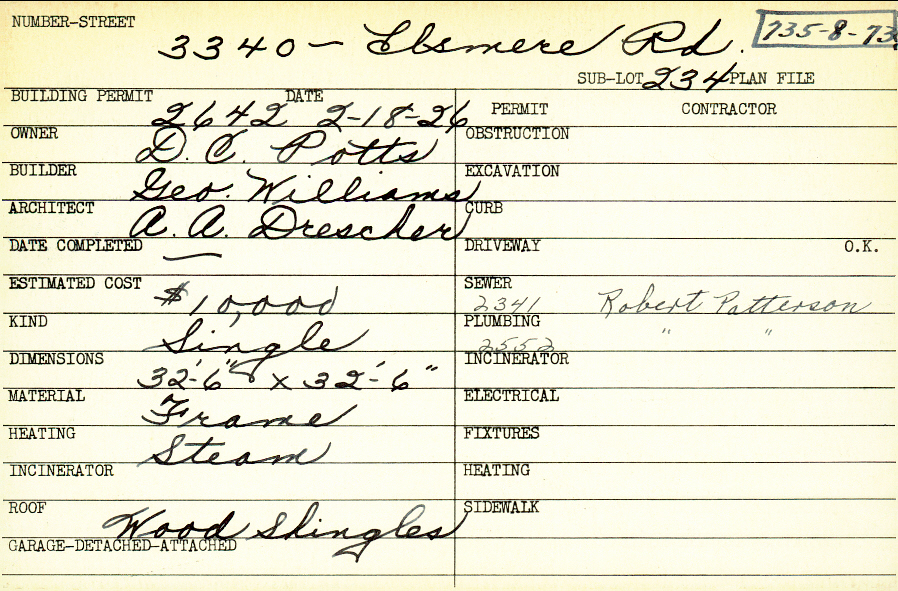 NUMBER-STREET
3340 - Elsmere Rd. 735-8-73
SUB-LOT 234 PLAN FILE
BUILDING PERMIT DATE
2642 2-18-26
PERMIT CONTRACTOR
OWNER D. C. Potts
OBSTRUCTION
BUILDER Geo. Williams
EXCAVATION
ARCHITECT A. A. Drescher
CURB
DATE COMPLETED —
DRIVEWAY O.K.
ESTIMATED COST $10,000
SEWER 2341 Robert Patterson
KIND Single
PLUMBING 2552 " "
DIMENSIONS 32'-6" x 32'-6"
INCINERATOR
MATERIAL Frame
ELECTRICAL
HEATING Steam
FIXTURES
INCINERATOR
HEATING
ROOF Wood Shingles
SIDEWALK
GARAGE-DETACHED-ATTACHED